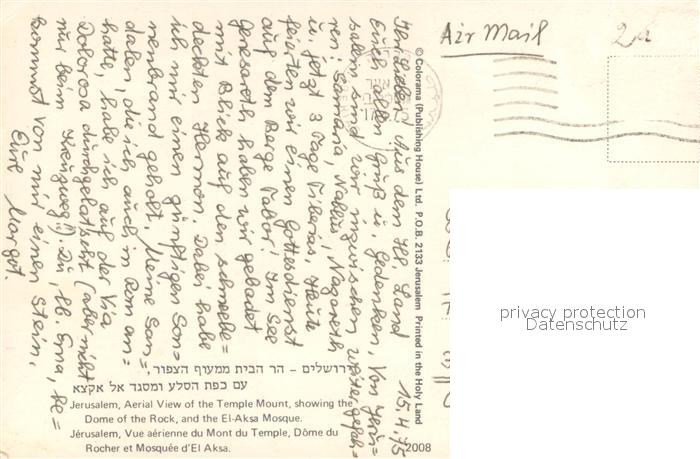 Air Mail
2a
15.4.75
Ihr Lieben! Aus dem Hl. Land
Euch allen Gruß u. Gedenken. Von Jeru=
salem sind wir inzwischen weitergefah=
ren: Samaria, Nablus, Nazareth
u. jetzt 3 Tage Tiberias. Heute
feierten wir einen Gottesdienst
auf dem Berge Tabor! Im See
Genesareth haben wir gebadet
mit Blick auf den schneebe=
deckten Hermon. Dabei habe
ich mir einen zünftigen Son=
nenbrand geholt. Meine San=
dalen, die ich auch in Rom an=
hatte, habe ich auf der Via
Dolorosa durchgelatscht (aber nicht
nur beim Kreuzweg!). Du, lb. Erna, be=
kommst von mir einen Stein.
Eure Margot.
© Colorama (Publishing House) Ltd. P.O.B. 2133 Jerusalem Printed in the Holy Land
ירושלים – הר הבית ממעוף הצפור,
עם כפת הסלע ומסגד אל אקצא
Jerusalem, Aerial View of the Temple Mount, showing the
Dome of the Rock, and the El-Aksa Mosque.
Jérusalem, Vue aérienne du Mont du Temple, Dôme du
Rocher et Mosquée d'El Aksa.
2008
privacy protection
Datenschutz